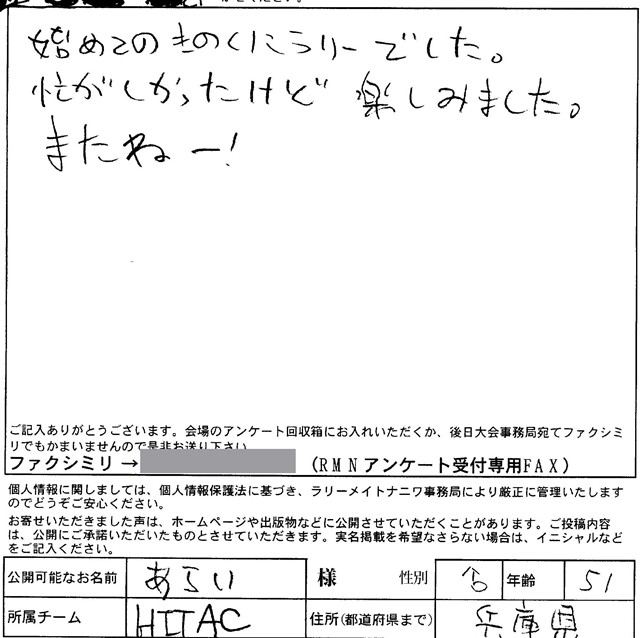 始めてのきのくにラリーでした。
忙がしかったけど楽しみました。
またねー!
ご記入ありがとうございます。会場のアンケート回収箱にお入れいただくか、後日大会事務局宛てファクシミ
リでもかまいませんので是非お送り下さい。
ファクシミリ→ (RMNアンケート受付専用FAX)
個人情報に関しましては、個人情報保護法に基づき、ラリーメイトナニワ事務局により厳正に管理いたします
のでどうぞご安心ください。
お寄せいただきました声は、ホームページや出版物などに公開させていただくことがあります。ご投稿内容
は、公開にご承諾いただいたものとさせていただきます。実名掲載を希望なさらない場合は、イニシャルなど
をご記入ください。
公開可能なお名前 あらい 様 性別 年齢 51
所属チーム HITAC 住所(都道府県まで) 兵庫県